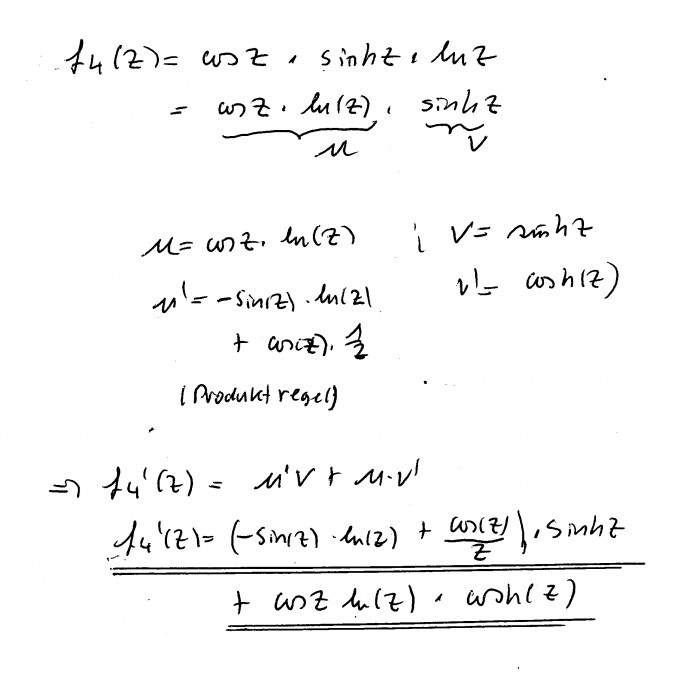 f₄(z) = cos z · sinh z · ln z
= cos z · ln(z) · sinh z
u v
u = cos z · ln(z) ; v = sinh z
u' = -sin(z) · ln(z) v' = cosh(z)
+ cos(z) · 1/z
(Produktregel)
⇒ f₄'(z) = u'v + u·v'
f₄'(z) = (-sin(z) · ln(z) + cos(z)/z) · sinh z
+ cos z ln(z) · cosh(z)